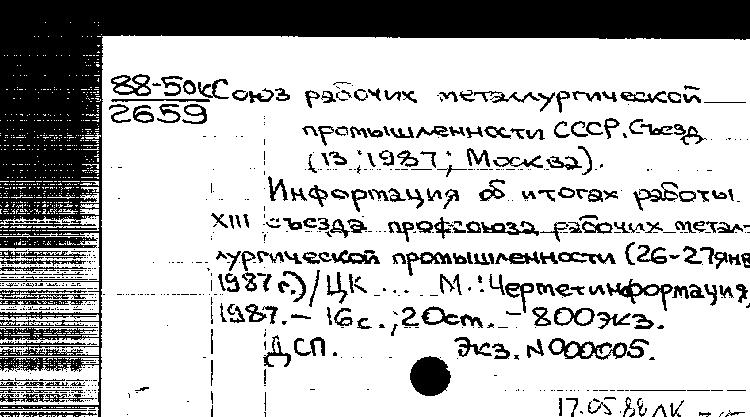 88-50к Союз рабочих металлургической
2659
промышленности СССР. Съезд
(13; 1987; Москва).
Информация об итогах работы
XIII съезда профсоюза рабочих метал-
лургической промышленности (26-27 янв
1987 г.) / ЦК ... М.: Черметинформация,
1987. - 16 с.; 20 см. - 800 экз.
ДСП. Экз. N 000005.
17.05.88